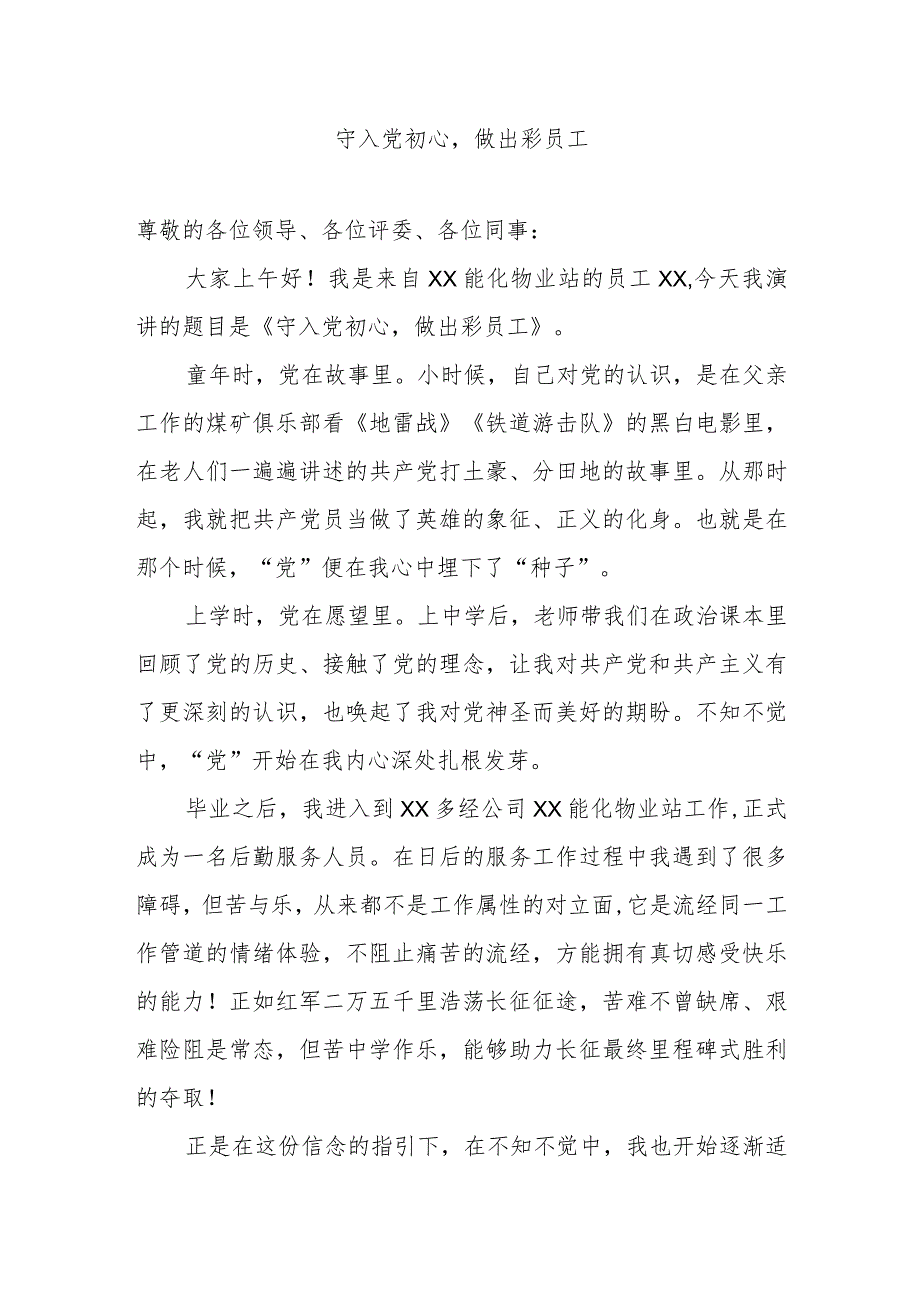 守入党初心，做出彩员工
尊敬的各位领导、各位评委、各位同事：
大家上午好！我是来自 XX 能化物业站的员工 XX,今天我演
讲的题目是《守入党初心，做出彩员工》。
童年时，党在故事里。小时候，自己对党的认识，是在父亲
工作的煤矿俱乐部看《地雷战》《铁道游击队》的黑白电影里，
在老人们一遍遍讲述的共产党打土豪、分田地的故事里。从那时
起，我就把共产党员当做了英雄的象征、正义的化身。也就是在
那个时候，“党”便在我心中埋下了“种子”。
上学时，党在愿望里。上中学后，老师带我们在政治课本里
回顾了党的历史、接触了党的理念，让我对共产党和共产主义有
了更深刻的认识，也唤起了我对党神圣而美好的期盼。不知不觉
中，“党”开始在我内心深处扎根发芽。
毕业之后，我进入到 XX 多经公司 XX 能化物业站工作,正式
成为一名后勤服务人员。在日后的服务工作过程中我遇到了很多
障碍，但苦与乐，从来都不是工作属性的对立面,它是流经同一工
作管道的情绪体验，不阻止痛苦的流经，方能拥有真切感受快乐
的能力！正如红军二万五千里浩荡长征征途，苦难不曾缺席、艰
难险阻是常态，但苦中学作乐，能够助力长征最终里程碑式胜利
的夺取！
正是在这份信念的指引下，在不知不觉中，我也开始逐渐适